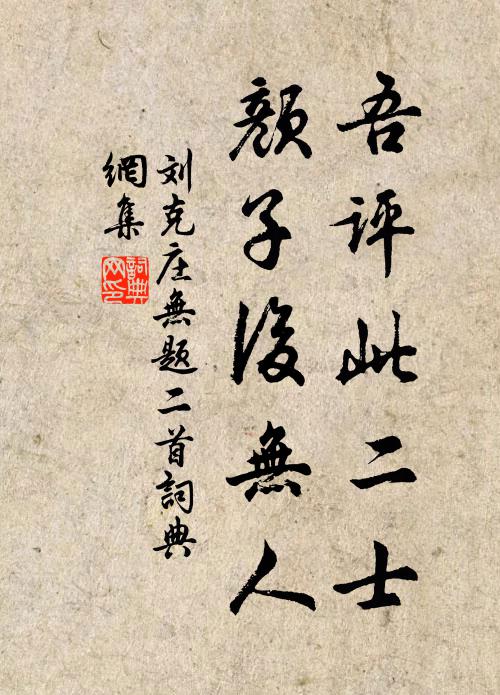 吾评此二士
颜子后無人
刘克庄無题二首詞典
網集
詞典
网印